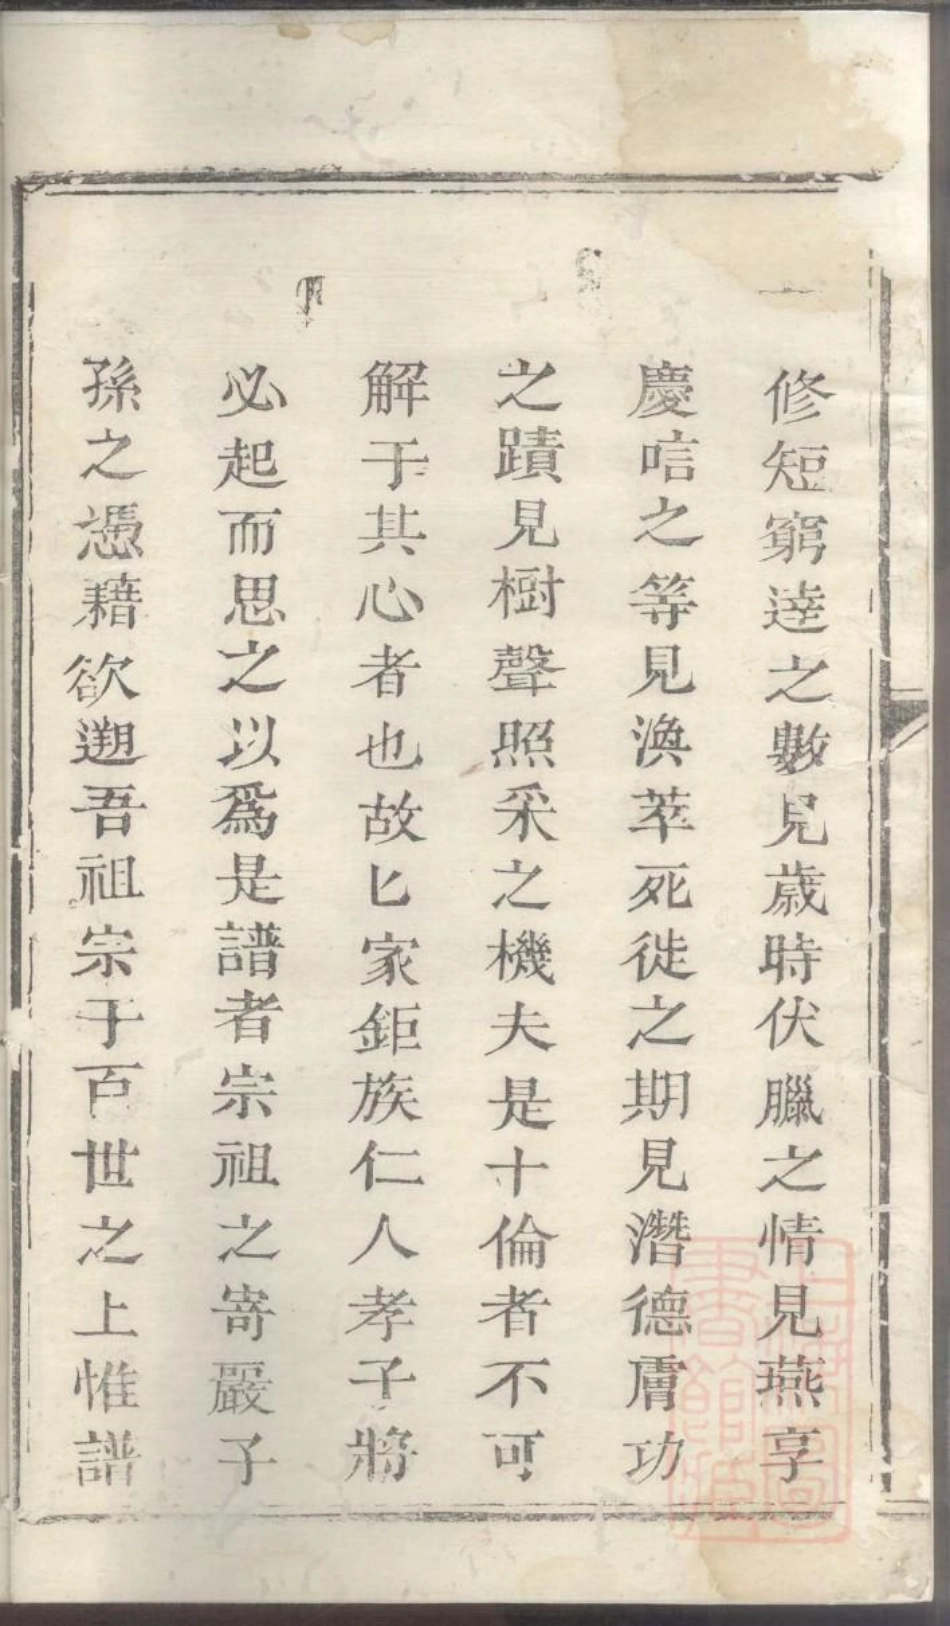 修短窮達之數見歳時伏臘之情見燕享
慶唁之等見渙萃死徙之期見潛德膚功
之蹟見樹聲照采之機夫是十倫者不可
解于其心者也故匕家鉅族仁人孝子將
必起而思之以爲是譜者宗祖之寄嚴子
孫之憑藉欲遡吾祖宗于百世之上惟譜